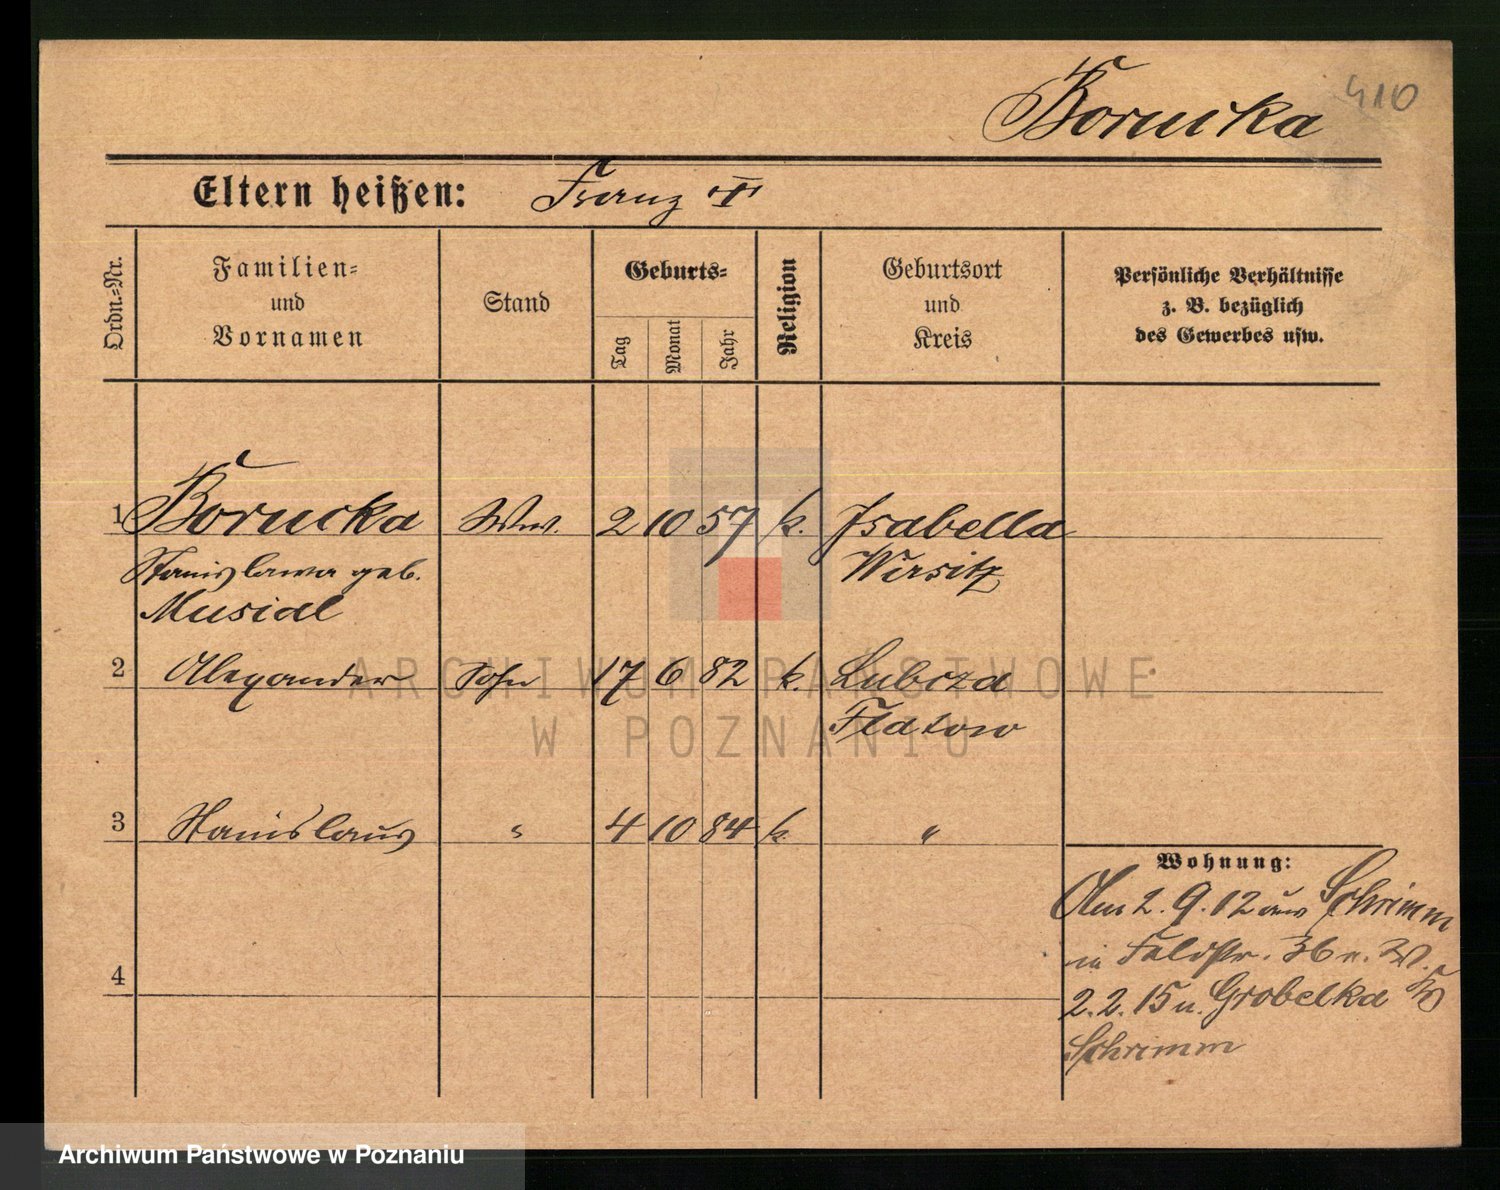 410
Borucka
Eltern heißen: Franz †
Ordn.=Nr.
Familien=
und
Vornamen
Stand
Geburts=
Tag
Monat
Jahr
Religion
Geburtsort
und
Kreis
Persönliche Verhältnisse
z. B. bezüglich
des Gewerbes usw.
1 Borucka Ww. 2 10 57 k. Isabella
Stanislawa geb. Wirsitz
Musial
2 Alexander Sohn 17 6 82 k. Lubcza
Flatow
3 Stanislaus " 4 10 84 k. "
Wohnung:
Am 2. 9. 12 aus Schrimm
in Feldstr. 36 n. W.
2. 2. 15 n. Grobelka Kr
Schrimm
4
ARCHIWUM PAŃSTWOWE
W POZNANIU
Archiwum Państwowe w Poznaniu